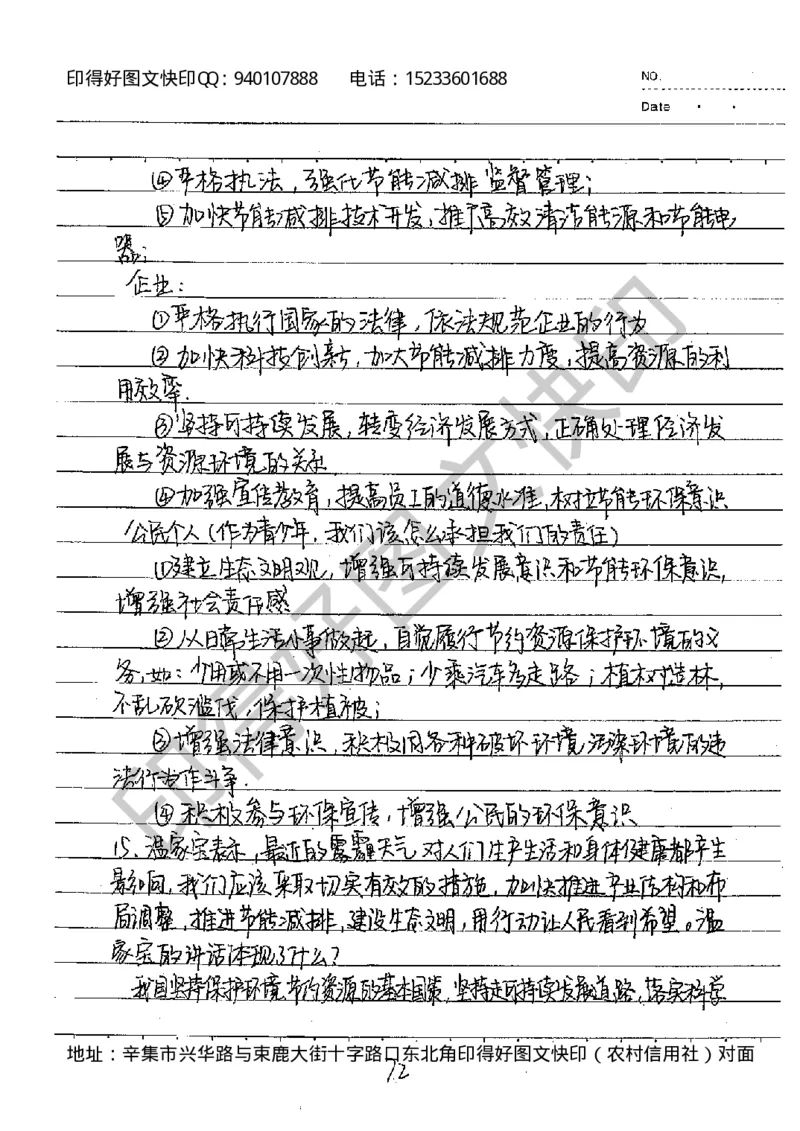 印得好图文快印QQ：940107888 电话：15233601688
NO.
Date
④严格执法，强化节能减排监督管理；
⑤加快节能减排技术开发，推广高效清洁能源和节能电
器；
企业：
①严格执行国家的法律，依法规范企业的行为
②加快科技创新，加大节能减排力度，提高资源的利
用效率.
③坚持可持续发展，转变经济发展方式，正确处理经济发
展与资源环境的关系
④加强宣传教育，提高员工的道德水准，树立节能环保意识
公民个人（作为青少年，我们该怎么承担我们的责任）
①建立生态文明观，增强可持续发展意识和节能环保意识，
增强社会责任感
②从日常生活小事做起，自觉履行节约资源保护环境的义
务，如：少用或不用一次性物品；少乘汽车多走路；植树造林，
不乱砍滥伐，保护植被；
③增强法律意识，积极同各种破坏环境污染环境的违
法行为作斗争.
④积极参与环保宣传，增强公民的环保意识
15、温家宝表示，最近的雾霾天气对人们生产生活和身体健康都产生
影响，我们应该采取切实有效的措施，加快推进产业结构和布
局调整，推进节能减排，建设生态文明，用行动让人民看到希望。温
家宝的讲话体现了什么？
我国坚持保护环境节约资源的基本国策，坚持走可持续发展道路，落实科学
地址：辛集市兴华路与束鹿大街十字路口东北角印得好图文快印（农村信用社）对面
12
印得好图文快印